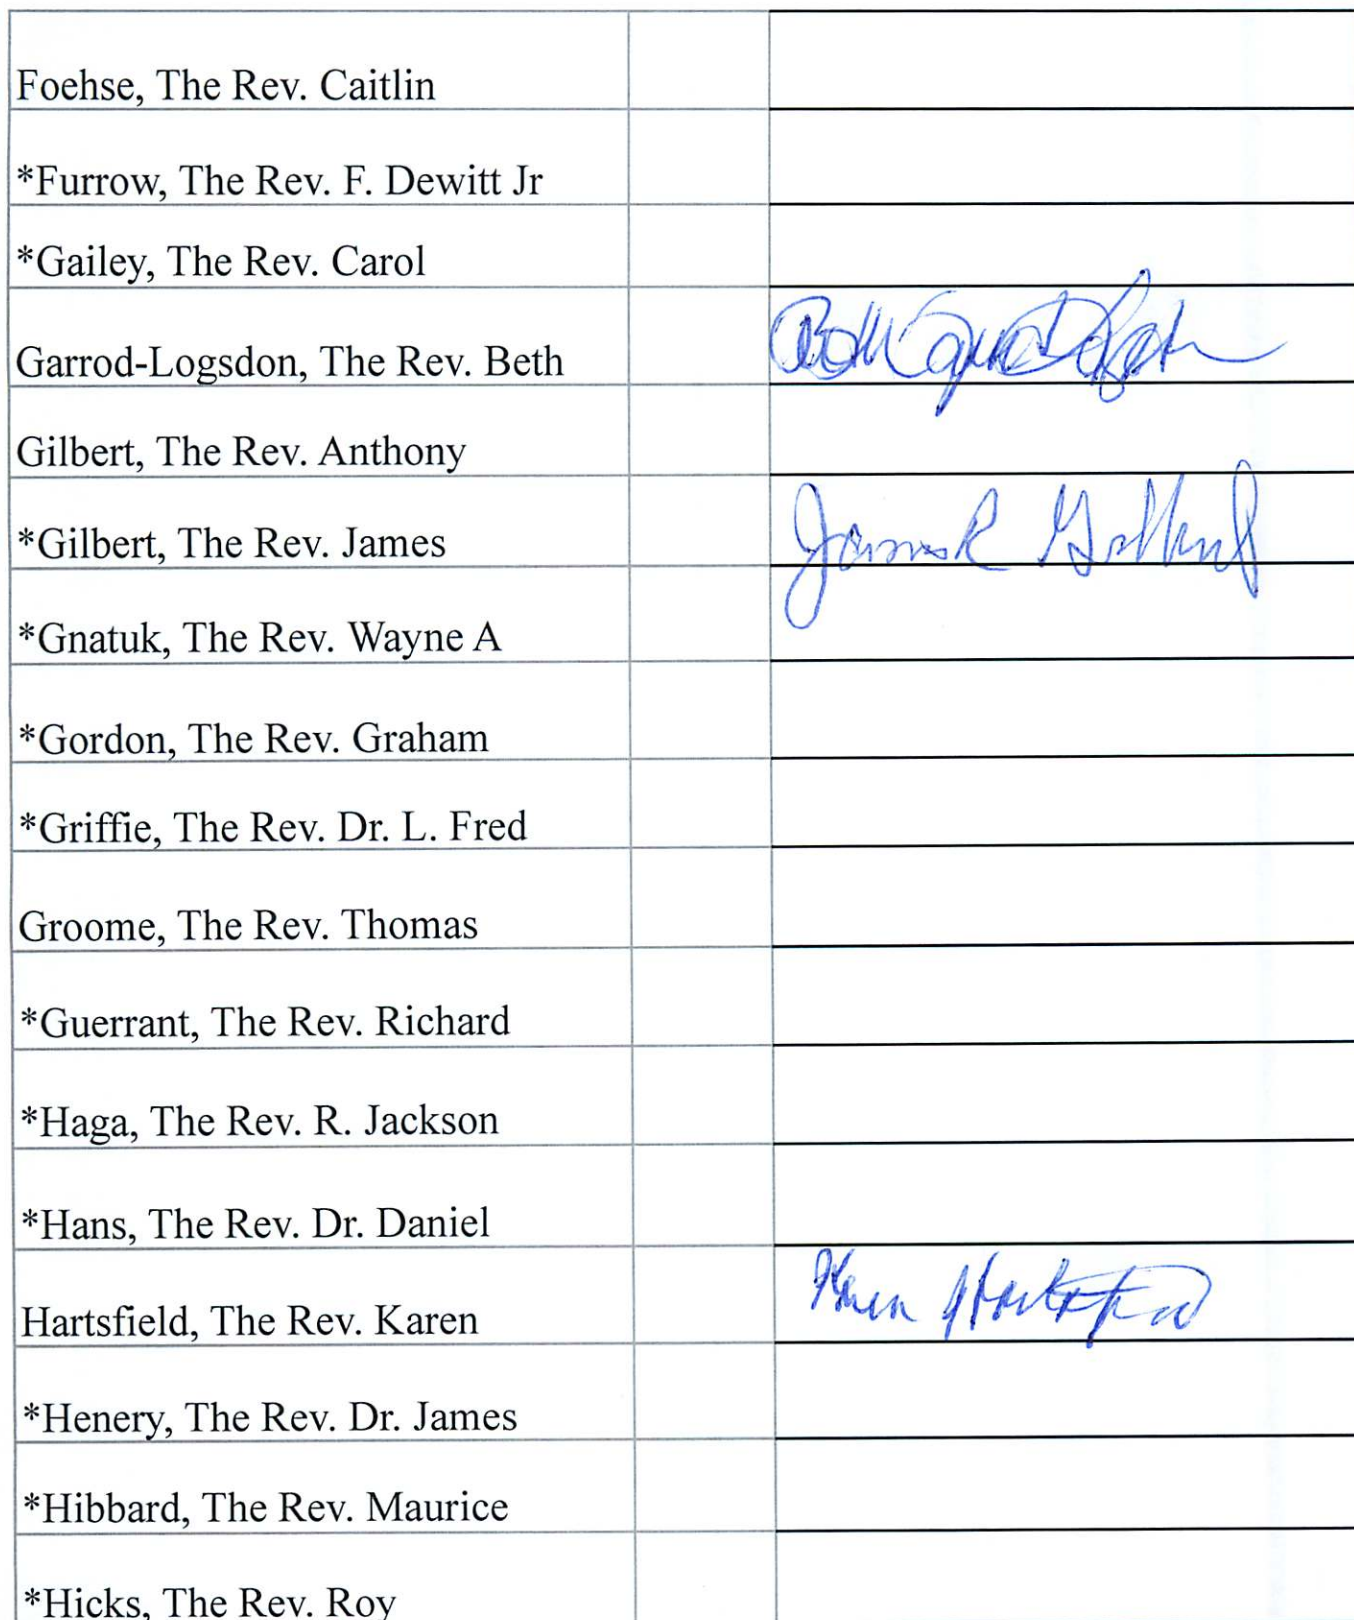 Foehse, The Rev. Caitlin
*Furrow, The Rev. F. Dewitt Jr
*Gailey, The Rev. Carol
Garrod-Logsdon, The Rev. Beth
Gilbert, The Rev. Anthony
*Gilbert, The Rev. James James R Gilbert
*Gnatuk, The Rev. Wayne A
*Gordon, The Rev. Graham
*Griffie, The Rev. Dr. L. Fred
Groome, The Rev. Thomas
*Guerrant, The Rev. Richard
*Haga, The Rev. R. Jackson
*Hans, The Rev. Dr. Daniel
Hartsfield, The Rev. Karen Karen Hartsfield
*Henery, The Rev. Dr. James
*Hibbard, The Rev. Maurice
*Hicks, The Rev. Roy